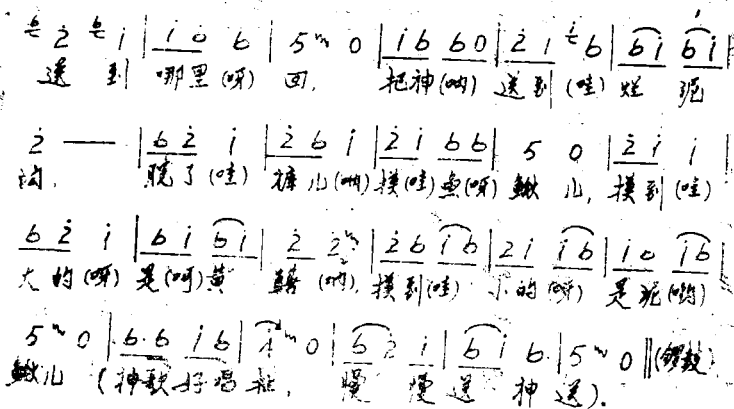 6 2̇ 6 i | i 6 6 | 5 0 | i 6 6 0 | 2̇ i i 6 | 6 i 6 i |
送 到 哪里(呀) 回, 把神(呐) 送到(哇) 烂 泥
2̇ — — | 6 2̇ i | 2̇ 6 i | 2̇ i 6 6 | 5 0 | 2̇ i i |
沟, 脱了(哇) 裤儿(呐) 摸(哇)鱼(呀) 鳅 儿, 摸到(哇)
6 2̇ i | 6 i 6 i | 2̇ 2̇ | 2̇ 6 i 6 | 2̇ i i 6 | i 6 i 6 |
大的(呀) 是(呵)黄 鳝 (呐), 摸到(哇) 小的(呀) 是泥(哟)
5 0 | 6·6 i 6 | i 0 | 6 2̇ i | 6 i 6 | 5 0 ‖ (锣鼓)
鳅儿 (神歌好唱 , 慢 慢送 神 送).